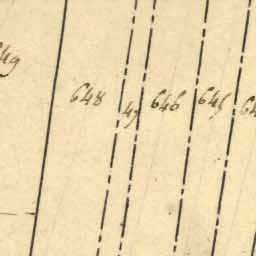 649 648 47 646 645 64